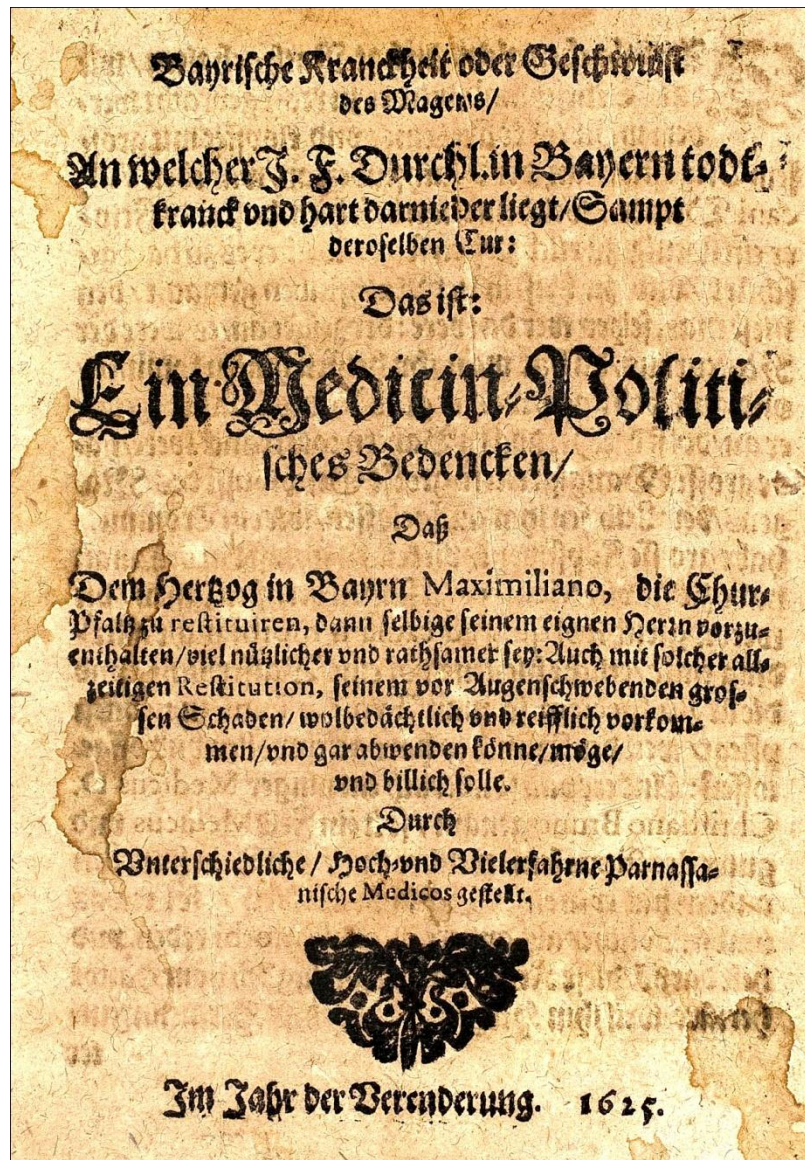 Bayrische Kranckheit oder Geschwulst
des Magens/
An welcher J. F. Durchl. in Bayern todt-
kranck vnd hart darnieder liegt/ Sampt
deroselben Cur:
Das ist:
Ein Medicin-Politi-
sches Bedencken/
Daß
Dem Hertzog in Bayrn Maximiliano, die Chur-
Pfaltz zu restituiren, dann selbige seinem eignen Herrn vorzu-
enthalten/ viel nützlicher vnd rathsamer sey: Auch mit solcher all-
zeitigen Restitution, seinem vor Augenschwebenden gros-
sen Schaden/ wolbedächtlich vnd reifflich vorkom-
men/ vnd gar abwenden könne/ möge/
vnd billich solle.
Durch
Vnterschiedliche/ Hoch-vnd Vielerfahrne Parnassa-
nische Medicos gestellt.
Im Jahr der Verenderung. 1625.